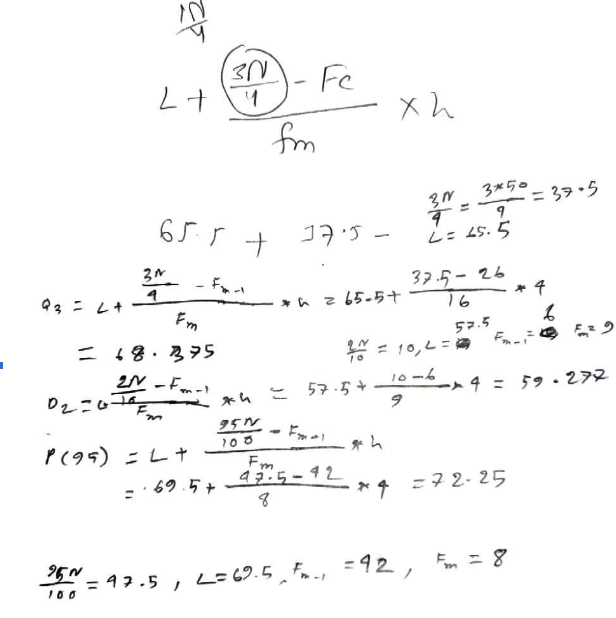 1N/4
L + (3N/4 - Fc)/fm × h
3N/4 = 3*50/4 = 37.5
65.5 + 37.5 - L = 65.5
Q3 = L + (3N/4 - Fm-1)/Fm * h = 65.5 + (37.5 - 26)/16 * 4
= 68.375
2N/10 = 10, L = 57.5 Fm-1 = 6 Fm = 9
D2 = L + (2N/10 - Fm-1)/Fm * h = 57.5 + (10 - 6)/9 * 4 = 59.277
P(95) = L + (95N/100 - Fm-1)/Fm * h
= 69.5 + (47.5 - 42)/8 * 4 = 72.25
95N/100 = 47.5, L = 69.5, Fm-1 = 42, Fm = 8